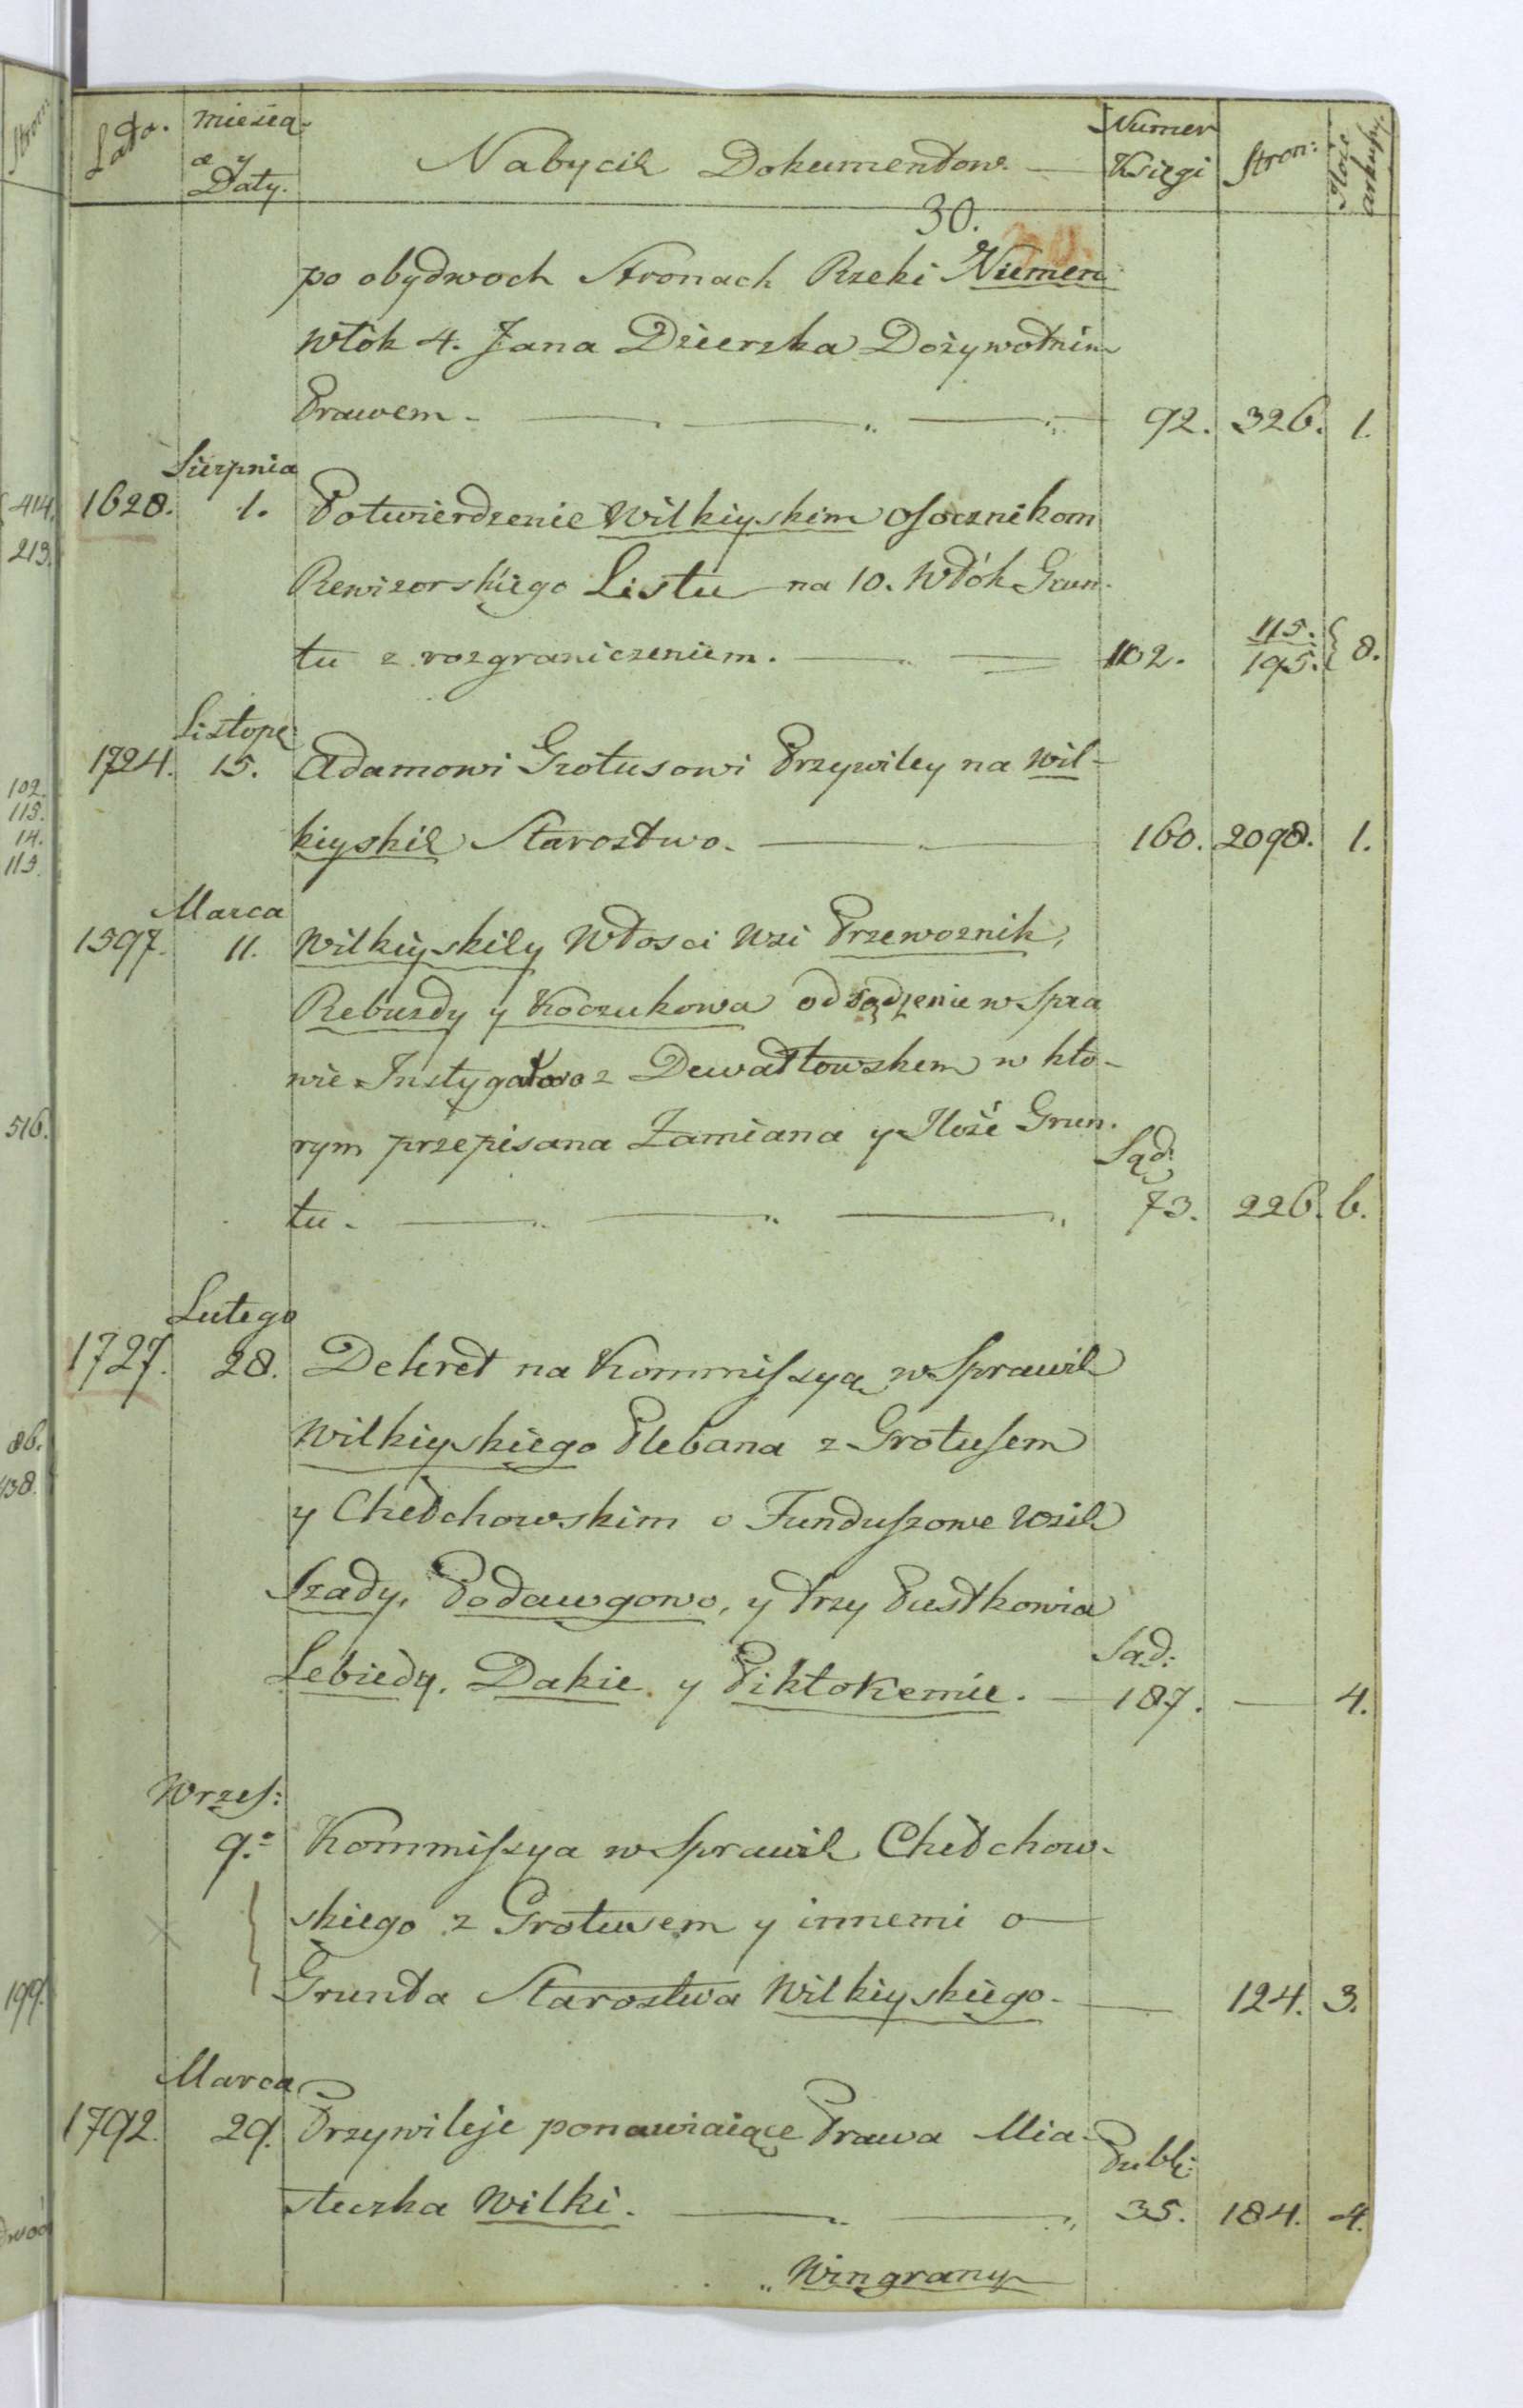 Lata. Miesią- Nabycie Dokumentow. Numer Stron: Ilość
ce y Księgi arkuszy.
Daty.
30.
po obydwoch Stronach Rzeki Niemen
włók 4. Jana Dzierzka Dożywotnim
Prawem. 92. 326. 1.
Sierpnia
1628. 1. Potwierdzenie Wilkiyskim osocznikom
Rewizorskiego Listu na 10. Włók Grun-
115.
tu z rozgraniczeniem. 102. 195. 8.
Listopa:
1724. 15. Adamowi Grotusowi Przywiley na Wil-
kiyskie Starostwo. 160. 2098. 1.
Marca
1597. 11. Wilkiyskiey Włosci Wsi Przewoznik,
Rebuzdy y Koczukowa odsądzenie w Spra
wie Instygatora z Dewałtowskem w kto-
rym przepisana Zamiana y Ilość Grun-
Sąd:
tu. 73. 226. 6.
Lutego
1727. 28. Dekret na Kommissyą w Sprawie
Wilkiyskiego Plebana z Grotusem
y Chełchowskim o Funduszowe Wsie
Szady, Podawgowo, y trzy Pustkowia
Sąd:
Lebiedy, Dakie y Piktokemie. 187. 4.
Wrzes:
9. Kommissya w Sprawie Chełchow-
skiego z Grotusem y innemi o
Grunta Starostwa Wilkiyskiego. 124. 3.
Marca
1792. 29. Przywileje ponawiaiące Prawa Mia-
Publ:
steczka Wilki. 35. 184. 4.
Wingrany